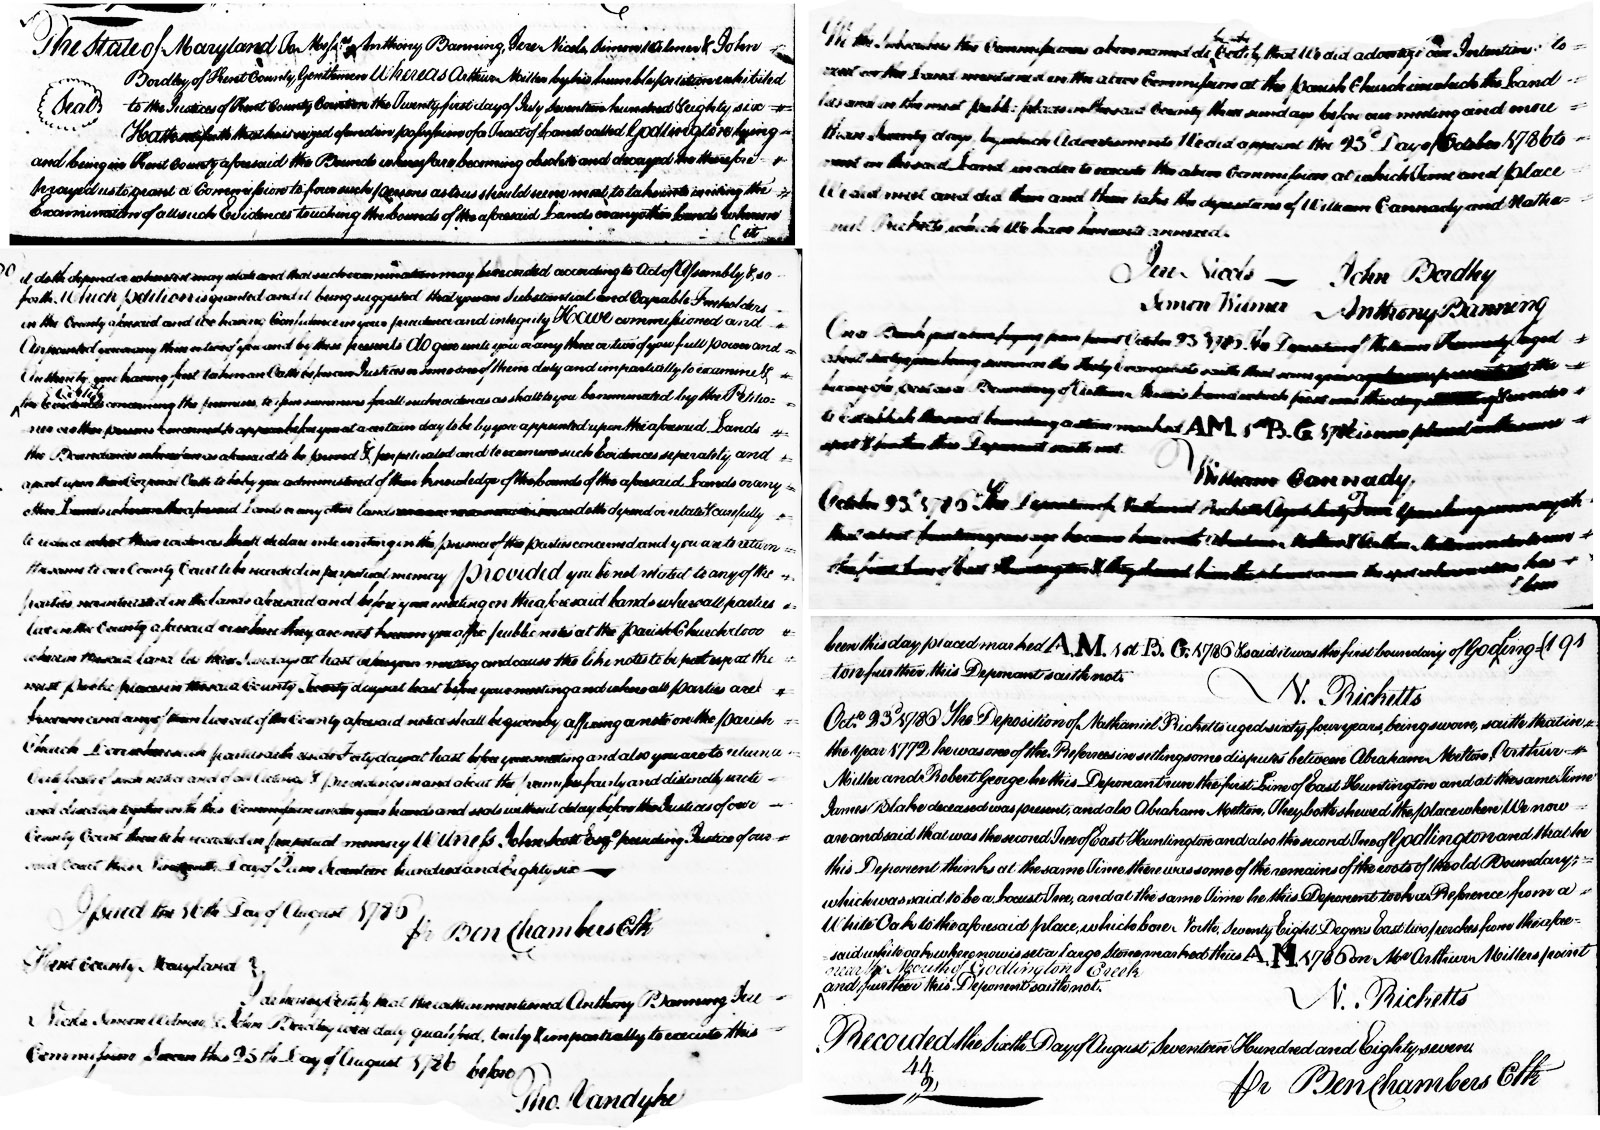 The State of Maryland To Messrs Anthony Banning, Jere Nicols, Simon Wilmer & John
Bordley of Kent County, Gentlemen Whereas Arthur Miller by his humble petition exhibited
Seal
to the Justices of Kent County Court on the Twenty first day of July Seventeen hundred & eighty six
Hath set forth that he is seized of and in possession of a Tract of Land called Godlington lying
and being in Kent County aforesaid the Bounds whereof are becoming obsolete and decayed he therefore
prayed us to grant a Commission to four such persons as to us should seem meet to take into writing the
Examination of all such Evidences touching the bounds of the aforesaid Lands or any other Lands whereon
it doth depend or whereto it may relate and that such examination may be recorded according to Act of Assembly & so
forth Which petition is granted and it being suggested that you are Substantial and Capable Freeholders
in the County aforesaid and we having Confidence in your prudence and integrity Have commissioned and
Appointed you or any three or two of you and by these presents Do give unto you or any three or two of you full power and
Authority, you having first taken an Oath before a Justice or some one of them duly and impartially to examine &
the Evidences concerning the premises, to issue summons for all such evidences as shall to you be nominated by the Petitio-
ner or other persons concerned to appear before you at a certain day to be by you appointed upon the aforesaid Lands
the Boundaries whereof are as aforesaid to be proved & perpetuated and to examine such Evidences seperately and
apart upon their Corporal Oath to be by you administered of their knowledge of the bounds of the aforesaid Lands or any
other Lands whereon the aforesaid Lands or any other lands doth depend or relate & carefully
to reduce what these evidences shall declare into writing in the presence of the parties concerned and you are to return
the same to our County Court to be recorded in perpetual memory provided you be not related to any of the
parties nor interested in the lands aforesaid and before your meeting on the aforesaid lands where all parties
live in the County aforesaid or where they are not known you affix public notes at the Parish Church door
wherein the said land lie three Sundays at least before your meeting and cause the like notes to be put up at the
most public places in the said County Twenty days at least before your meeting and where all parties are
known and any of them live out of the County aforesaid notice shall be given by affixing a note on the parish
Church Door wherein such parties reside Forty days at least before your meeting and also you are to return a
and close up together with this Commission under your hands and seals without delay before the Justices of our
County Court there to be recorded in perpetual memory Witness John Scott Esqr. presiding Justice of our
said Court this Day of June Seventeen hundred and Eighty six
Issued the 16th Day of August 1786
pr Ben Chambers Clk
Kent County Maryland
I do hereby Certify that the within mentioned Anthony Banning Jere
Nicols Simon Wilmer, & John Bordley were duly qualified, truly & impartially to execute this
Commission Sworn this 25th Day of August 1786 before
Tho. Vandyke
We the Subscribers the Commissioners above named do hereby Certify that We did advertise our Intentions to
meet on the Land mentioned in the above Commission at the parish Church in which the Land
lies and in the most public places in the said County three sundays before our meeting and more
than Twenty days, by which Advertisements We did appoint the 23d Day of October 1786 to
meet on the said Land in order to execute the above Commission at which Time and place
We did meet and did then and there take the depositions of William Cannady and Natha-
niel Ricketts, which We have hereunto annexed.
Jere Nicols John Bordley
Simon Wilmer Anthony Banning
October 23d 1786 The Deposition of William Kennedy aged
about sixty years being sworn on the Holy Evangels saith that some years ago the
to Establish the said boundary a stone marked AM 1st B. G. 1786 is now placed in the same
spot & further this Deponent saith not.
William Cannady.
October 23d 1786 The Deposition of Nathaniel Ricketts Aged Sixty Four Years being sworn saith
that about fourteen years ago
the first line of East Huntington & they shewed him the place as the spot where a stone has
been
been this day placed marked A.M. 1st B. G. 1786 & said it was the first boundary of Godling- (191
ton further this Deponant saith not.
N. Ricketts
Octr. 23d 1786 The Deposition of Nathaniel Ricketts aged sixty four years, being sworn, saith that in
the year 1772, he was one of the Referees in setling some disputes between Abraham Melton, & Arthur
Miller and Robert George he this Deponant run the first Line of East Huntington and at the same Time
James Blake deceased was present, and also Abraham Melton, They both shewed the place where We now
are and said that was the second Tree of East Huntington and also the second Tree of Godlington and that he
this Deponent thinks at the same Time there was some of the remains of the roots of the old Boundary,
which was said to be a Locust Tree, and at the same Time he this Deponent took a Reference from a
White Oak to the aforesaid place, which bore North, Seventy Eight Degrees East two perches from the afore-
said white oak where now is set a large Stone marked thus A.M. 1786 on Mr. Arthur Millers point
near the Mouth of Godlington Creek
and further this Deponent saith not.
N. Ricketts
Recorded the Sixth Day of August Seventeen Hundred and Eighty seven.
pr Ben Chambers Clk